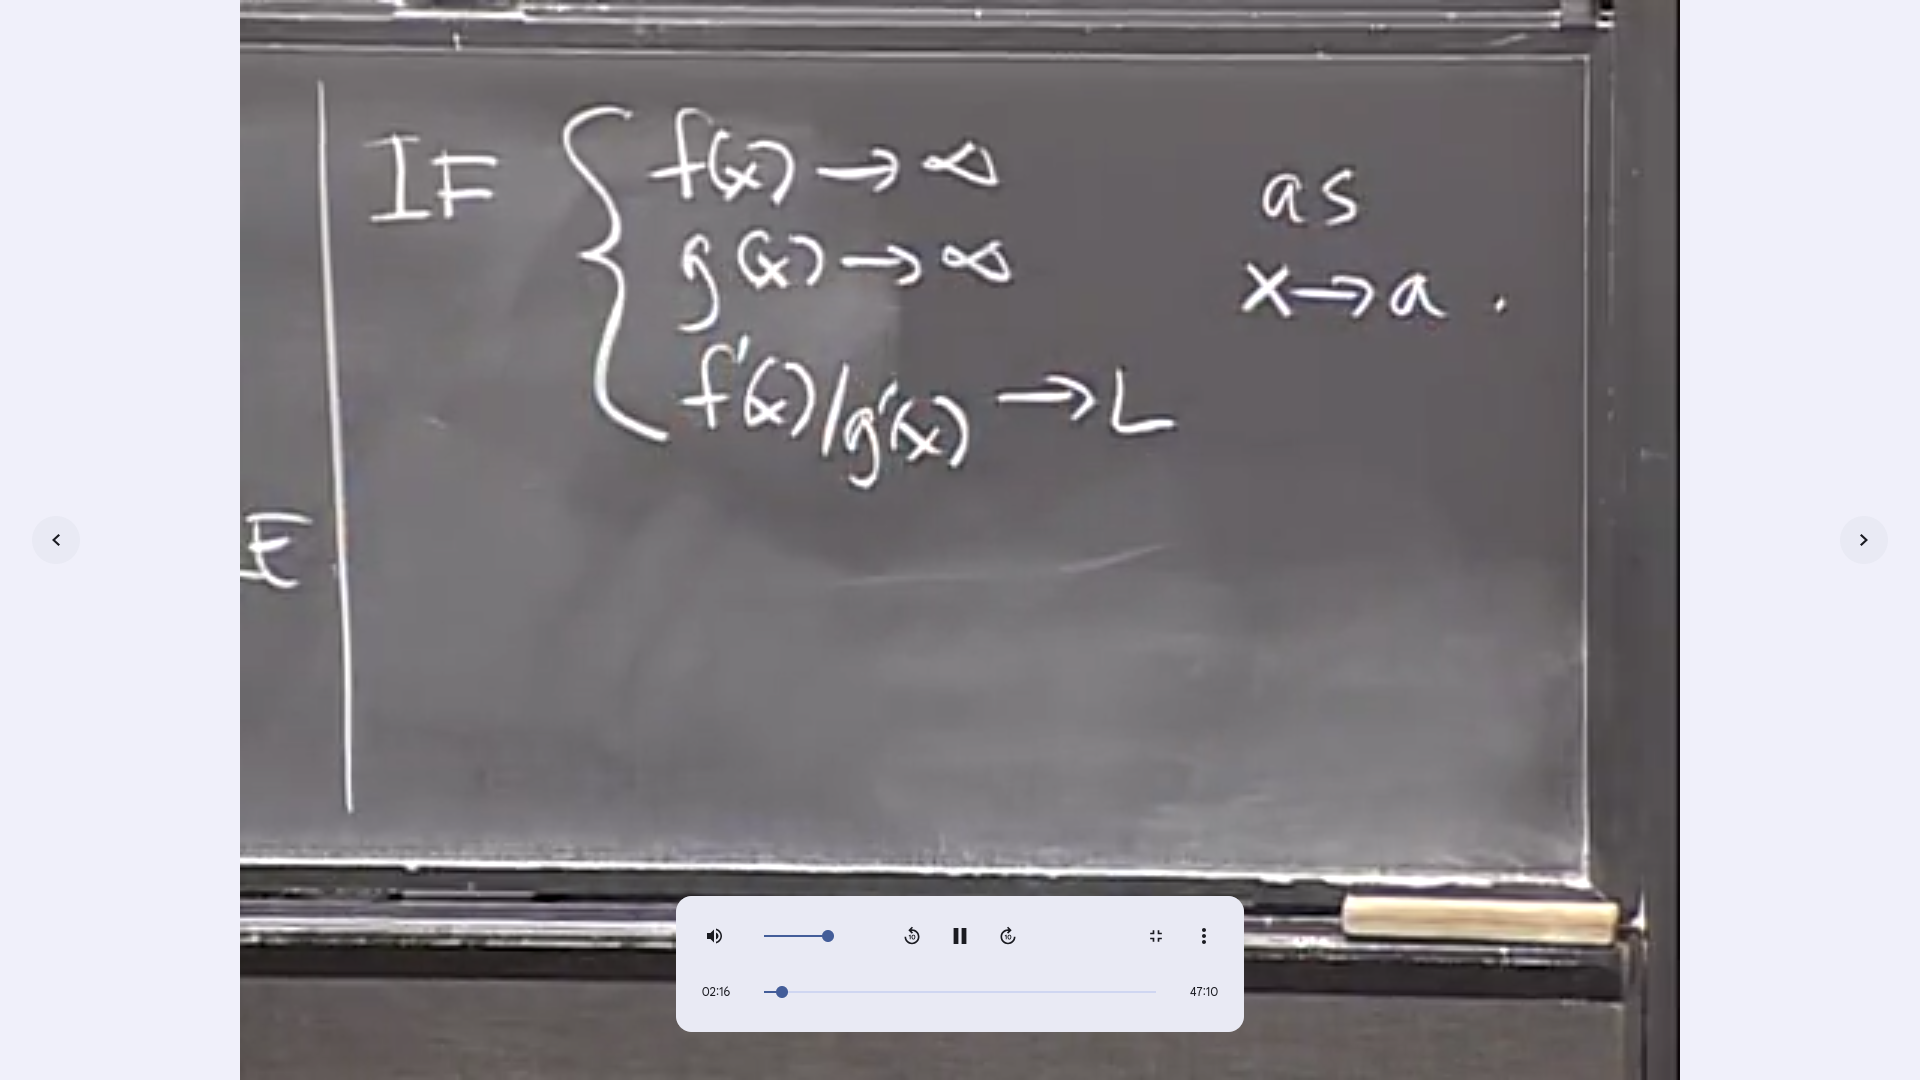 IF { f(x) → ∞
g(x) → ∞
f'(x)/g'(x) → L
as
x → a .
E
10
10
02:16
47:10